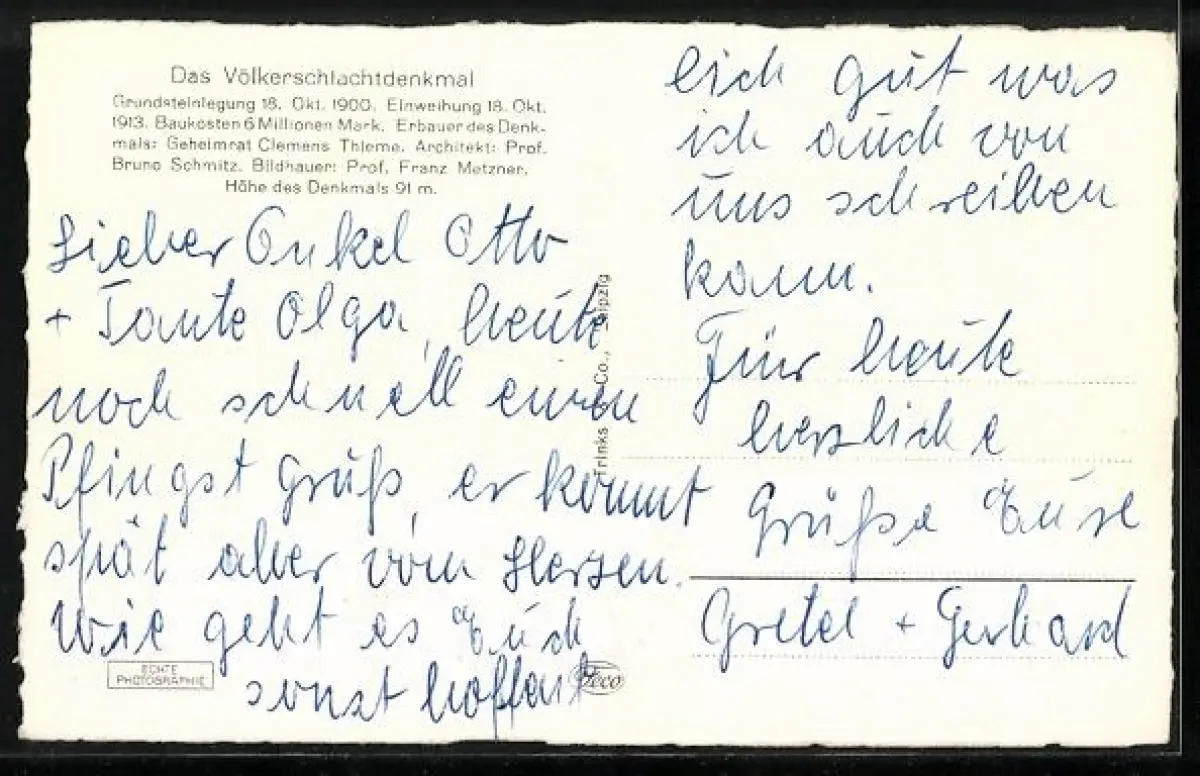 Das Völkerschlachtdenkmal
Grundsteinlegung 18. Okt. 1900. Einweihung 18. Okt.
1913. Baukosten 6 Millionen Mark. Erbauer des Denk-
mals: Geheimrat Clemens Thieme. Architekt: Prof.
Bruno Schmitz. Bildhauer: Prof. Franz Metzner.
Höhe des Denkmals 91 m.
Lieber Onkel Otto
+ Tante Olga, heute
noch schnell einen
Pfingst Grüß, er kommt
spät aber vom Herzen.
Wie geht es Euch
sonst hoffent
lich gut was
ich auch von
uns schreiben
kann.
Für heute
herzliche
Grüße Eure
Gretel + Gerhard
Trinks & Co., Leipzig
ECHTE
PHOTOGRAPHIE